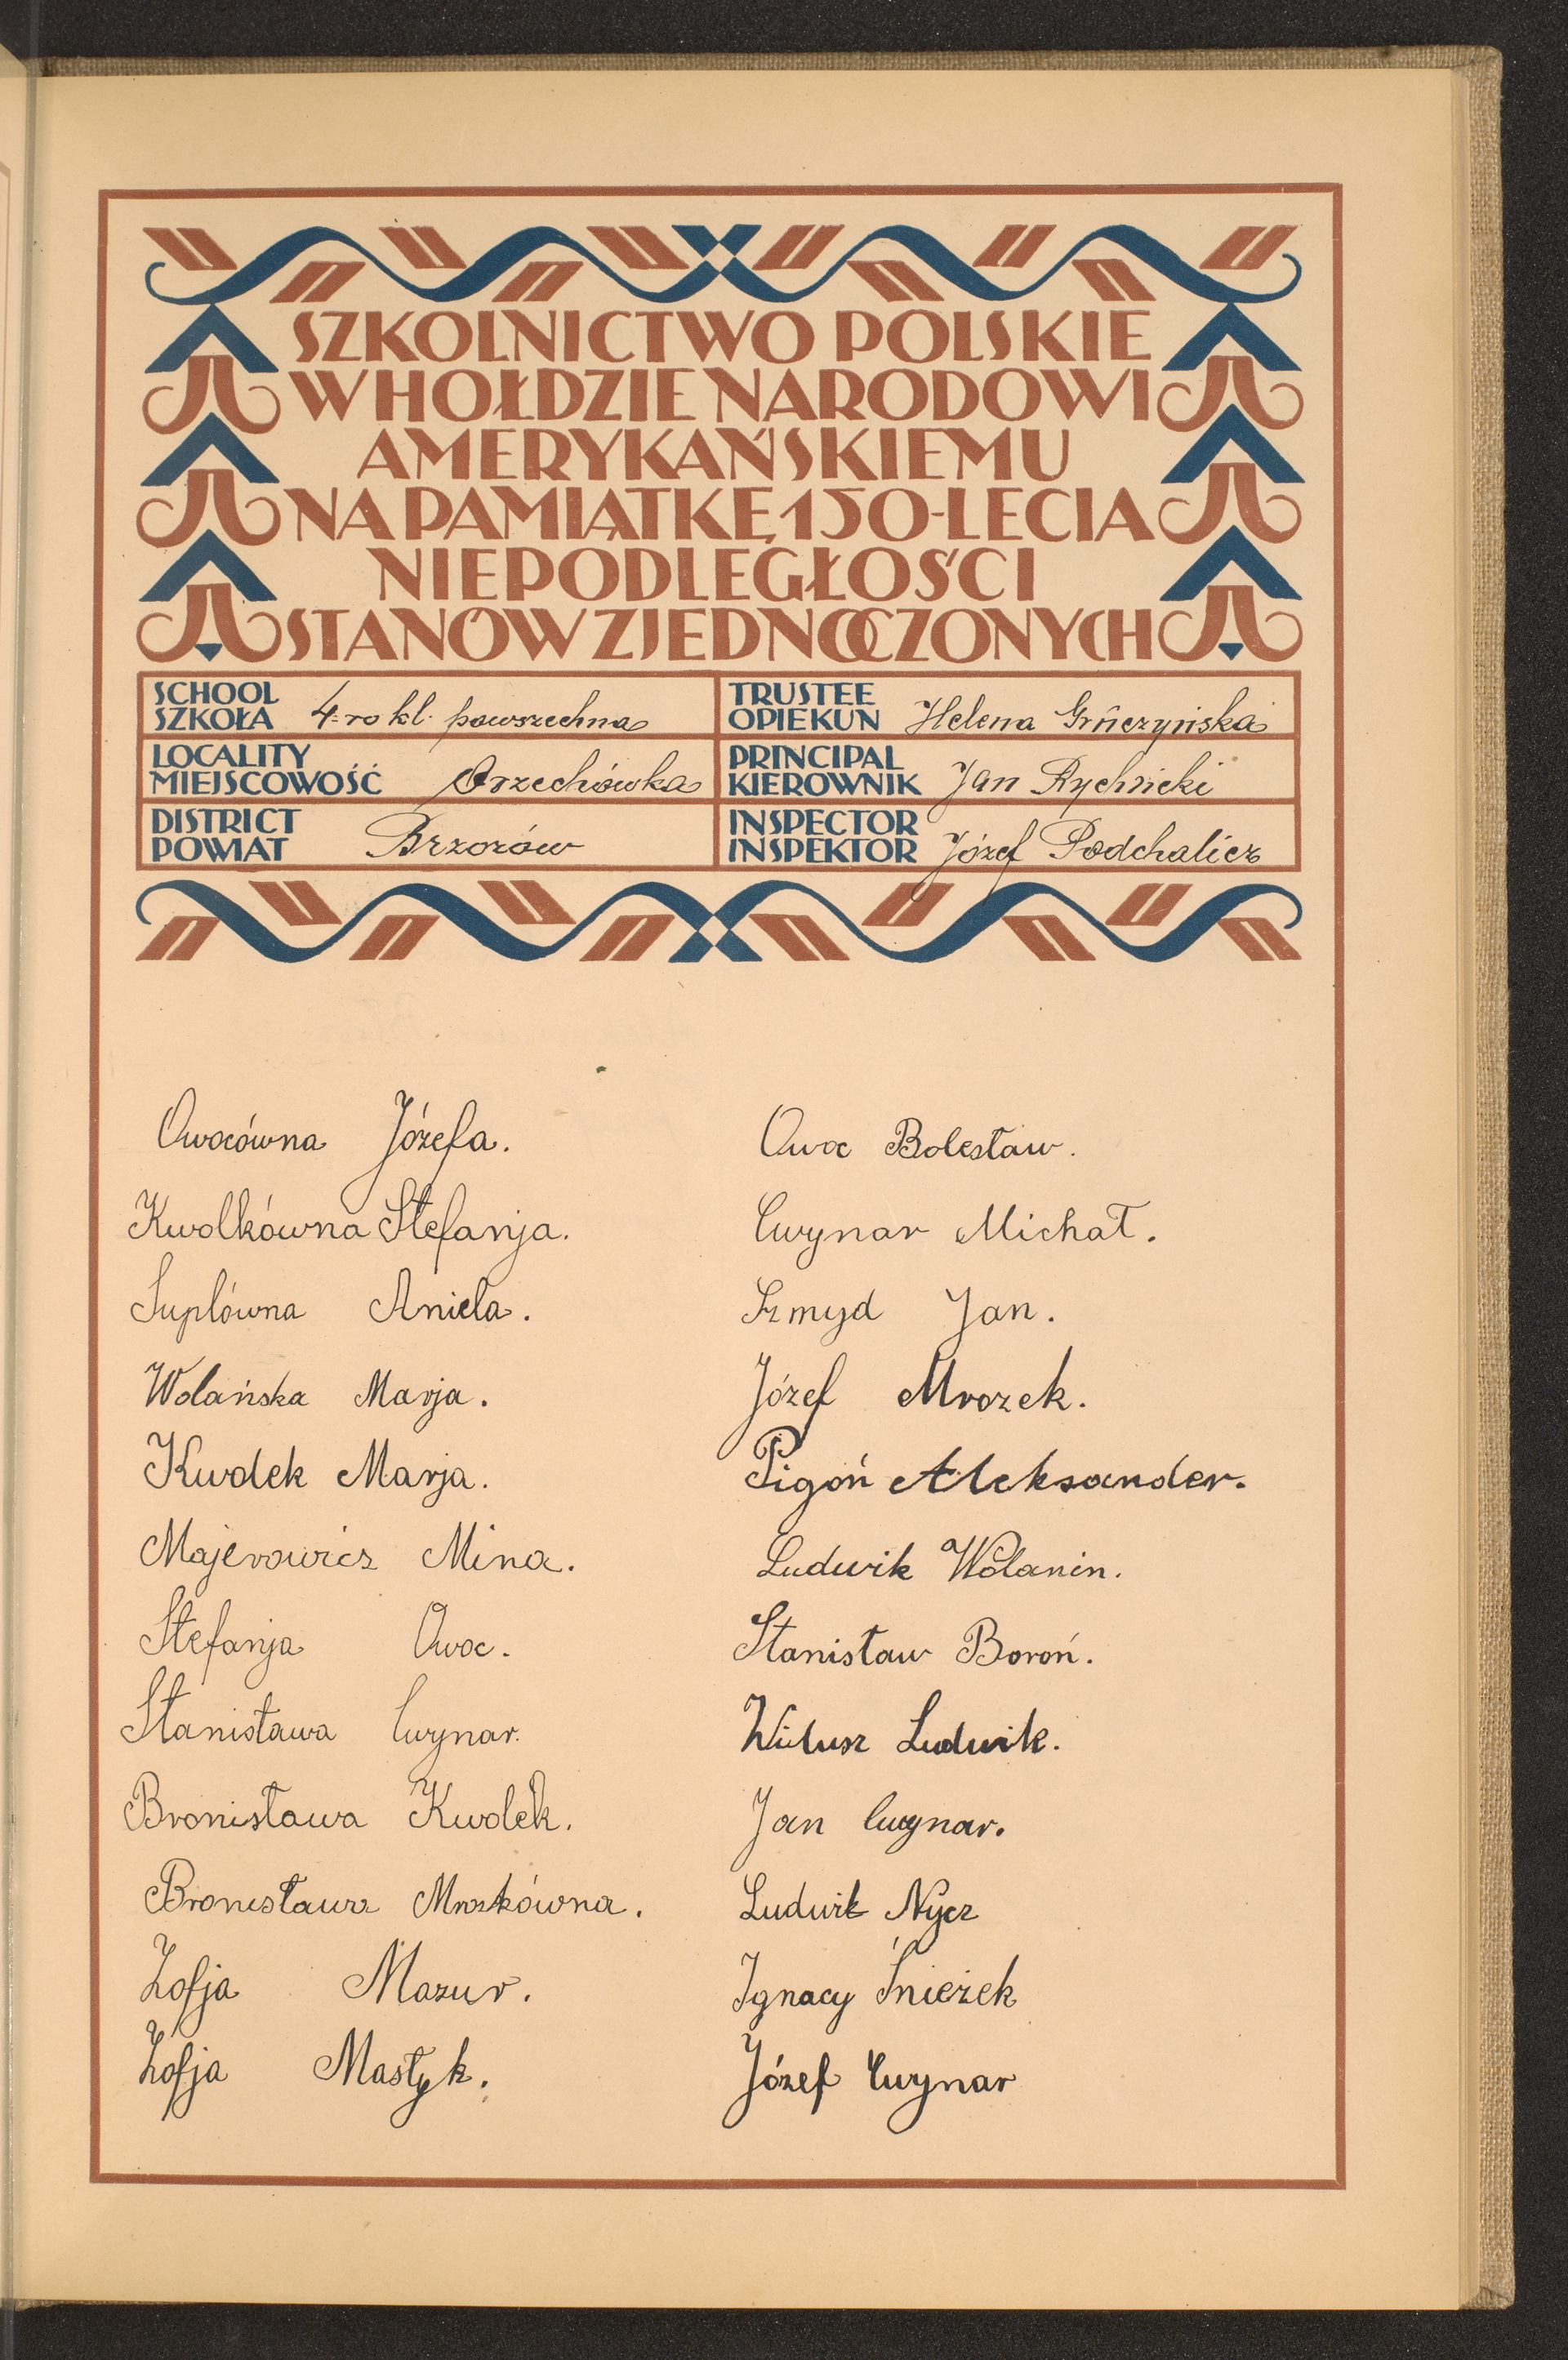 SZKOLNICTWO POLSKIE
W HOŁDZIE NARODOWI
AMERYKAŃSKIEMU
NA PAMIĄTKĘ 150-LECIA
NIEPODLEGŁOŚCI
STANÓW ZJEDNOCZONYCH
SCHOOL
SZKOŁA 4-ro kl. powszechna
TRUSTEE
OPIEKUN Helena
LOCALITY
MIEJSCOWOŚĆ Orzechówka
PRINCIPAL
KIEROWNIK Jan Rychlicki
DISTRICT
POWIAT Brzozów
INSPECTOR
INSPEKTOR Józef Podchalicz
Owocówna Józefa.
Kwolkówna Stefanja.
Suplówna Aniela.
Wolańska Marja.
Kwolek Marja.
Majerowicz Mina.
Stefanja Owoc.
Stanisława Cwynar.
Bronisława Kwolek.
Bronisława Mrozkówna.
Zofja Mazur.
Zofja Mastyk.
Owoc Bolesław.
Cwynar Michał.
Szmyd Jan.
Józef Mrozek.
Pigoń Aleksander.
Ludwik Wolanin.
Stanisław Boroń.
Ludwik.
Jan Cwynar.
Ludwik Nycz
Ignacy Śnieżek
Józef Cwynar